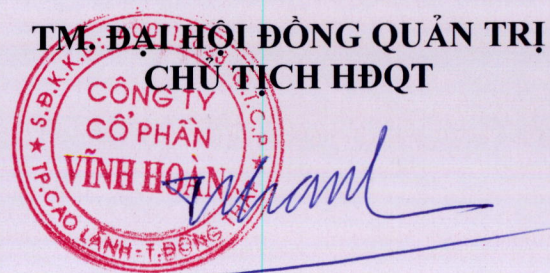 TM. ĐẠI HỘI ĐỒNG QUẢN TRỊ
CHỦ TỊCH HĐQT
CÔNG TY
CỔ PHẦN
VĨNH HOÀN
TP.CAO LÃNH-T.ĐỒNG